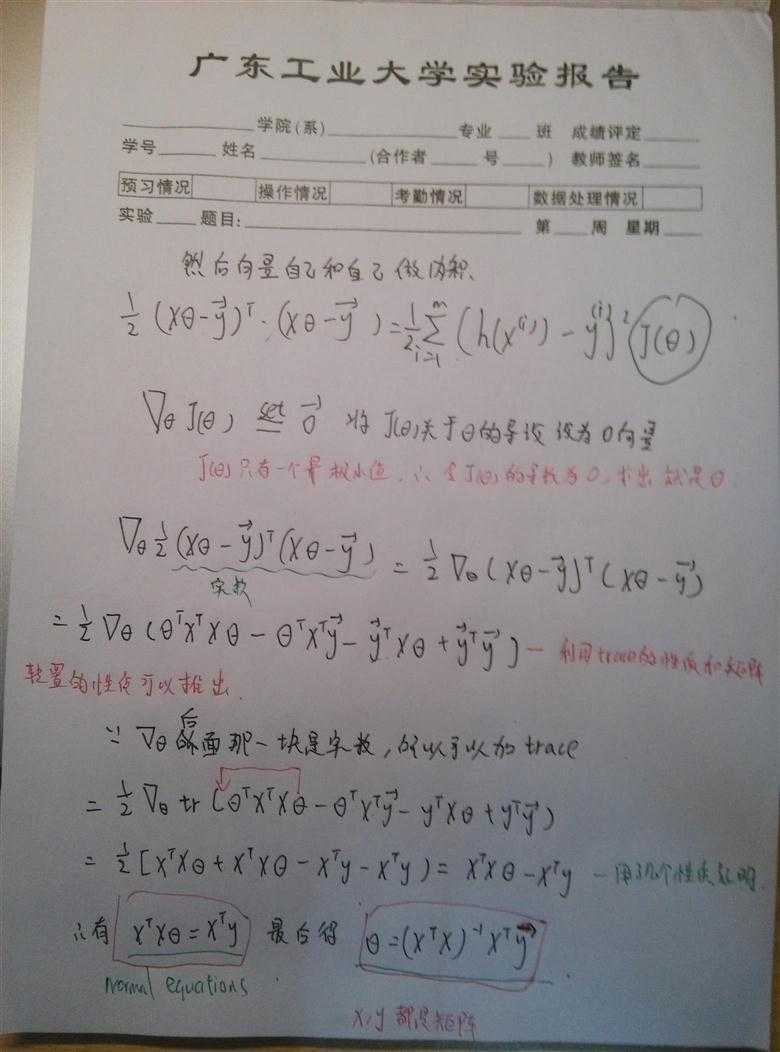 广东工业大学实验报告
学院(系) 专业 班 成绩评定
学号 姓名 (合作者 号 ) 教师签名
预习情况 操作情况 考勤情况 数据处理情况
实验 题目: 第 周 星期
然后向量自己和自己做内积、
½ (Xθ-y⃗)ᵀ·(Xθ-y⃗) = ½ Σᵢ₌₁ᵐ (h(x⁽ⁱ⁾) - y⁽ⁱ⁾)² J(θ)
∇θ J(θ) set= 0⃗ 将 J(θ)关于θ的导数设为0向量
J(θ)只有一个最极小值, ∴ 令J(θ)的导数为0, 求出就是θ
∇θ ½ (Xθ-y⃗)ᵀ(Xθ-y⃗) = ½ ∇θ (Xθ-y⃗)ᵀ(Xθ-y⃗)
实数
= ½ ∇θ (θᵀXᵀXθ - θᵀXᵀy⃗ - y⃗ᵀXθ + y⃗ᵀy⃗) — 利用trace的性质和矩阵
转置的性质可以推出.
∵ ∇θ 后面那一块是实数, 所以可以加trace
= ½ ∇θ tr (θᵀXᵀXθ - θᵀXᵀy⃗ - yᵀXθ + yᵀy⃗)
= ½ [XᵀXθ + XᵀXθ - Xᵀy - Xᵀy) = XᵀXθ - Xᵀy — 用几个性质证明.
∴有 XᵀXθ = Xᵀy 最后得 θ = (XᵀX)⁻¹Xᵀy⃗
normal equations
X,y 都是矩阵